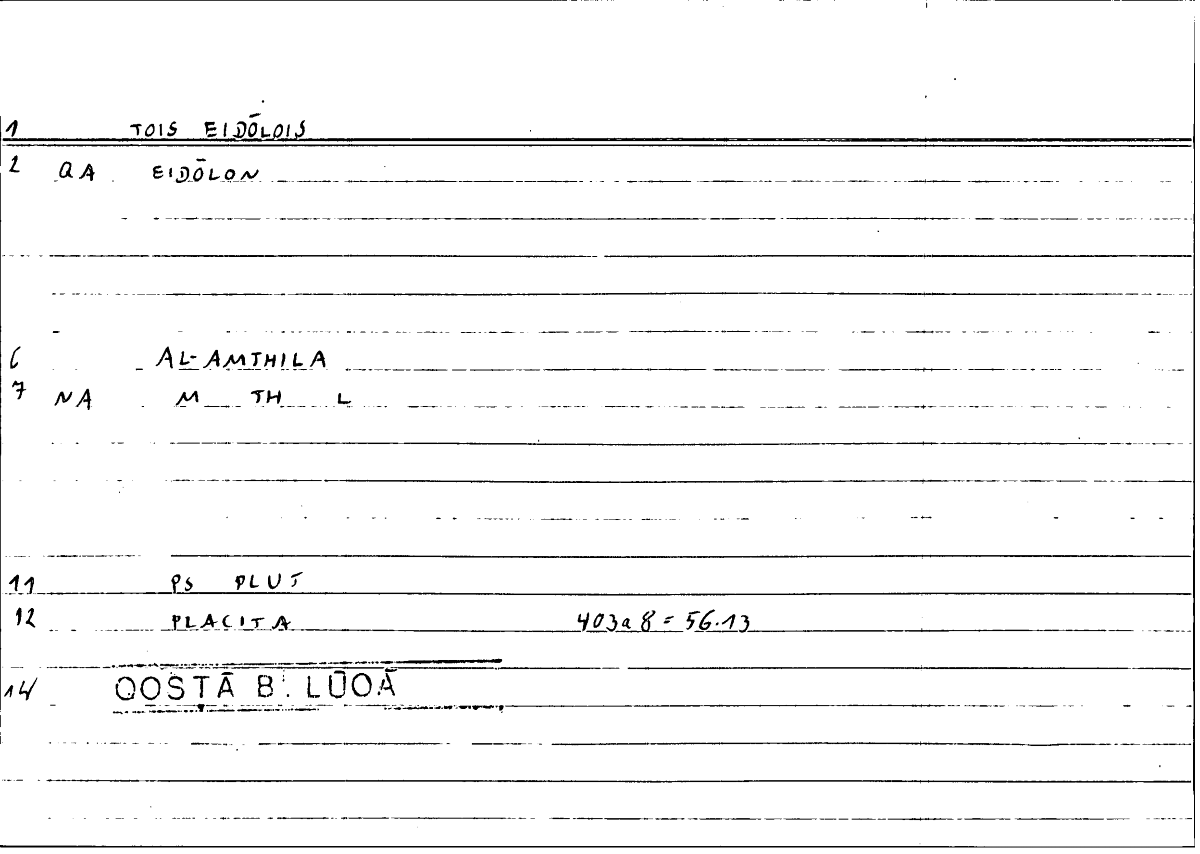 1 TOIS EIDŌLOIS
2 QA EIDŌLON
6 AL-AMTHILA
7 NA M TH L
11 PS PLUT
12 PLACITA 403a8 = 56.13
14 QOSTĀ B. LŪQĀ